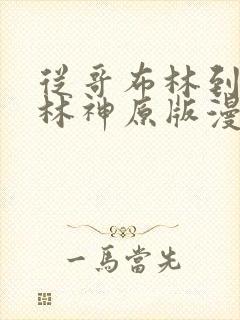 從哥布林到
林神原版漫
一馬當先